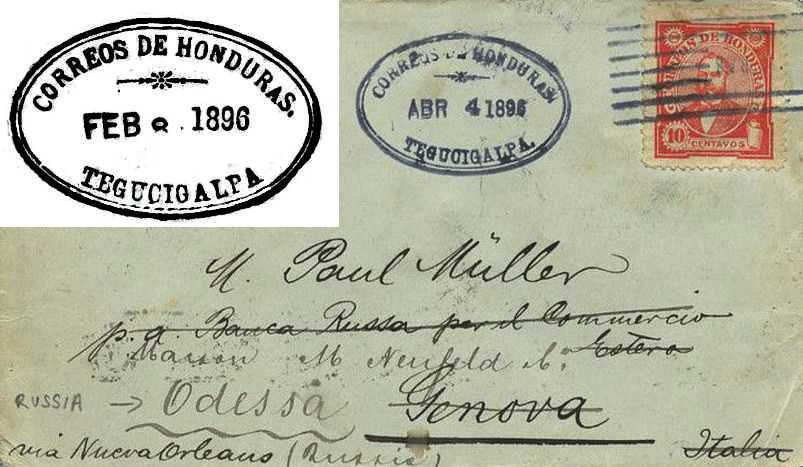 CORREOS DE HONDURAS.
FEB 8 . 1896
TEGUCIGALPA
CORREOS DE HONDURAS.
ABR 4 1896
TEGUCIGALPA.
CORREOS DE HONDURAS
10
CENTAVOS
M. Paul Müller
p. a. Banca Russa per il Commercio
Estero
Maison M. Neufeld &
RUSSIA → Odessa Genova
via Nueva Orleans (Russie) Italia